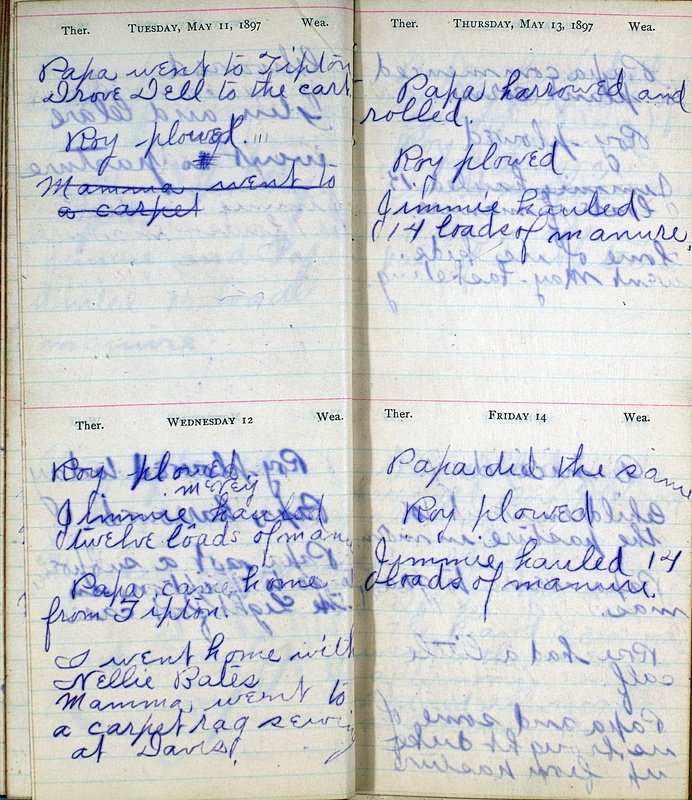 Ther. TUESDAY, MAY 11, 1897 Wea.
Papa went to Tipton
Drove Dell to the cart
Roy plowed.
Mamma went to
a carpet
Ther. WEDNESDAY 12 Wea.
Roy plowed.
McVey
Jimmie hauled
twelve loads of man
Papa came home
from Tipton.
I went home with
Nellie Bales
Mamma, went to
a carpet rag sewing
at Davis'.
Ther. THURSDAY, MAY 13, 1897 Wea.
Papa harrowed and
rolled.
Roy plowed
Jimmie hauled
14 loads of manure.
Ther. FRIDAY 14 Wea.
Papa did the same
Roy plowed
Jimmie hauled 14
loads of manure.